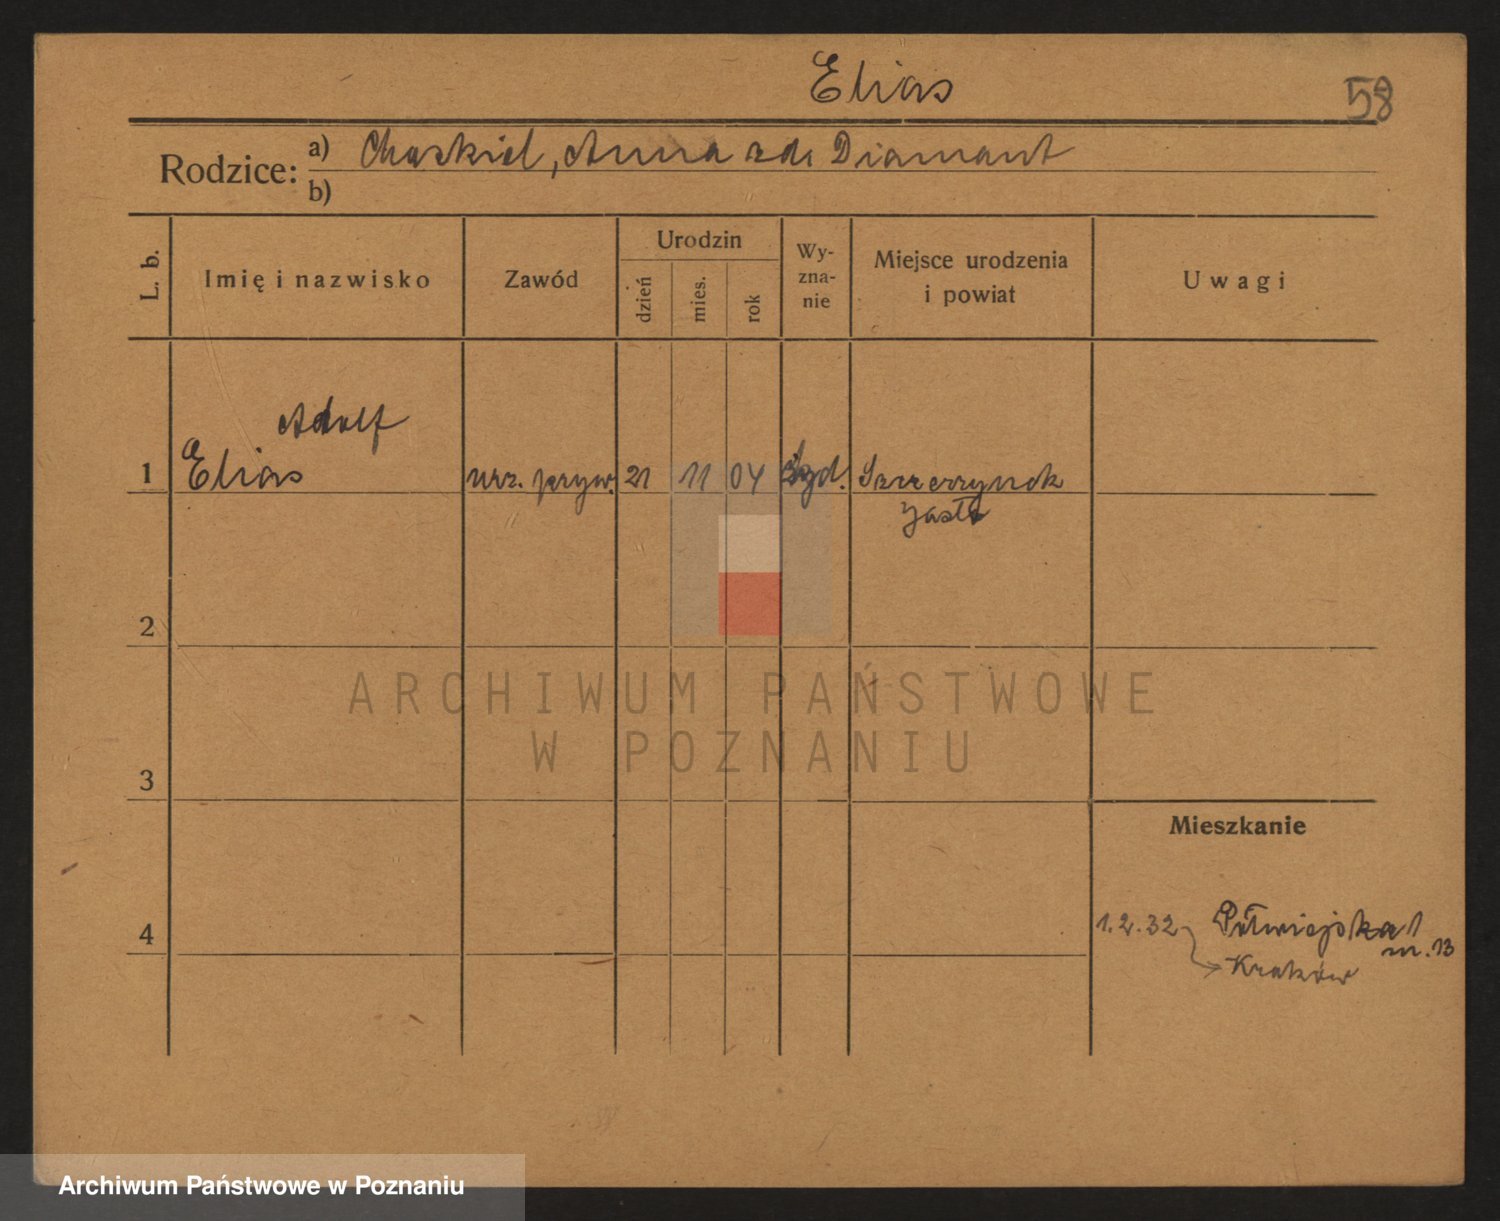 Elias
58
Rodzice: a) Chaskiel, Anna zd. Diamant
b)
L. b.
Imię i nazwisko
Zawód
Urodzin
dzień
mies.
rok
Wy-
zna-
nie
Miejsce urodzenia
i powiat
Uwagi
Adolf
1 Elias urz. pryw. 21 11 04 Żyd. Szczerzynek
Jasło
2
ARCHIWUM PAŃSTWOWE
W POZNANIU
3
Mieszkanie
4
1.2.32 Półwiejska 1
m. 13
Kraków
Archiwum Państwowe w Poznaniu